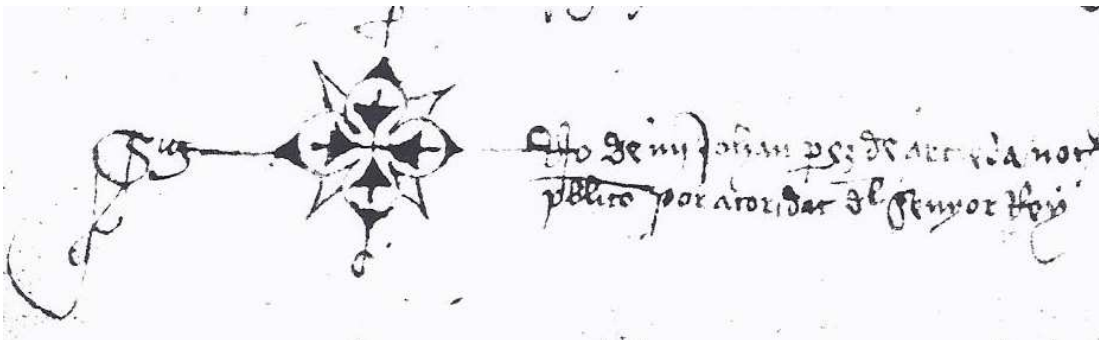 Sig no de mi Johan prz de artieda not
publico por actoridat del senyor Rey